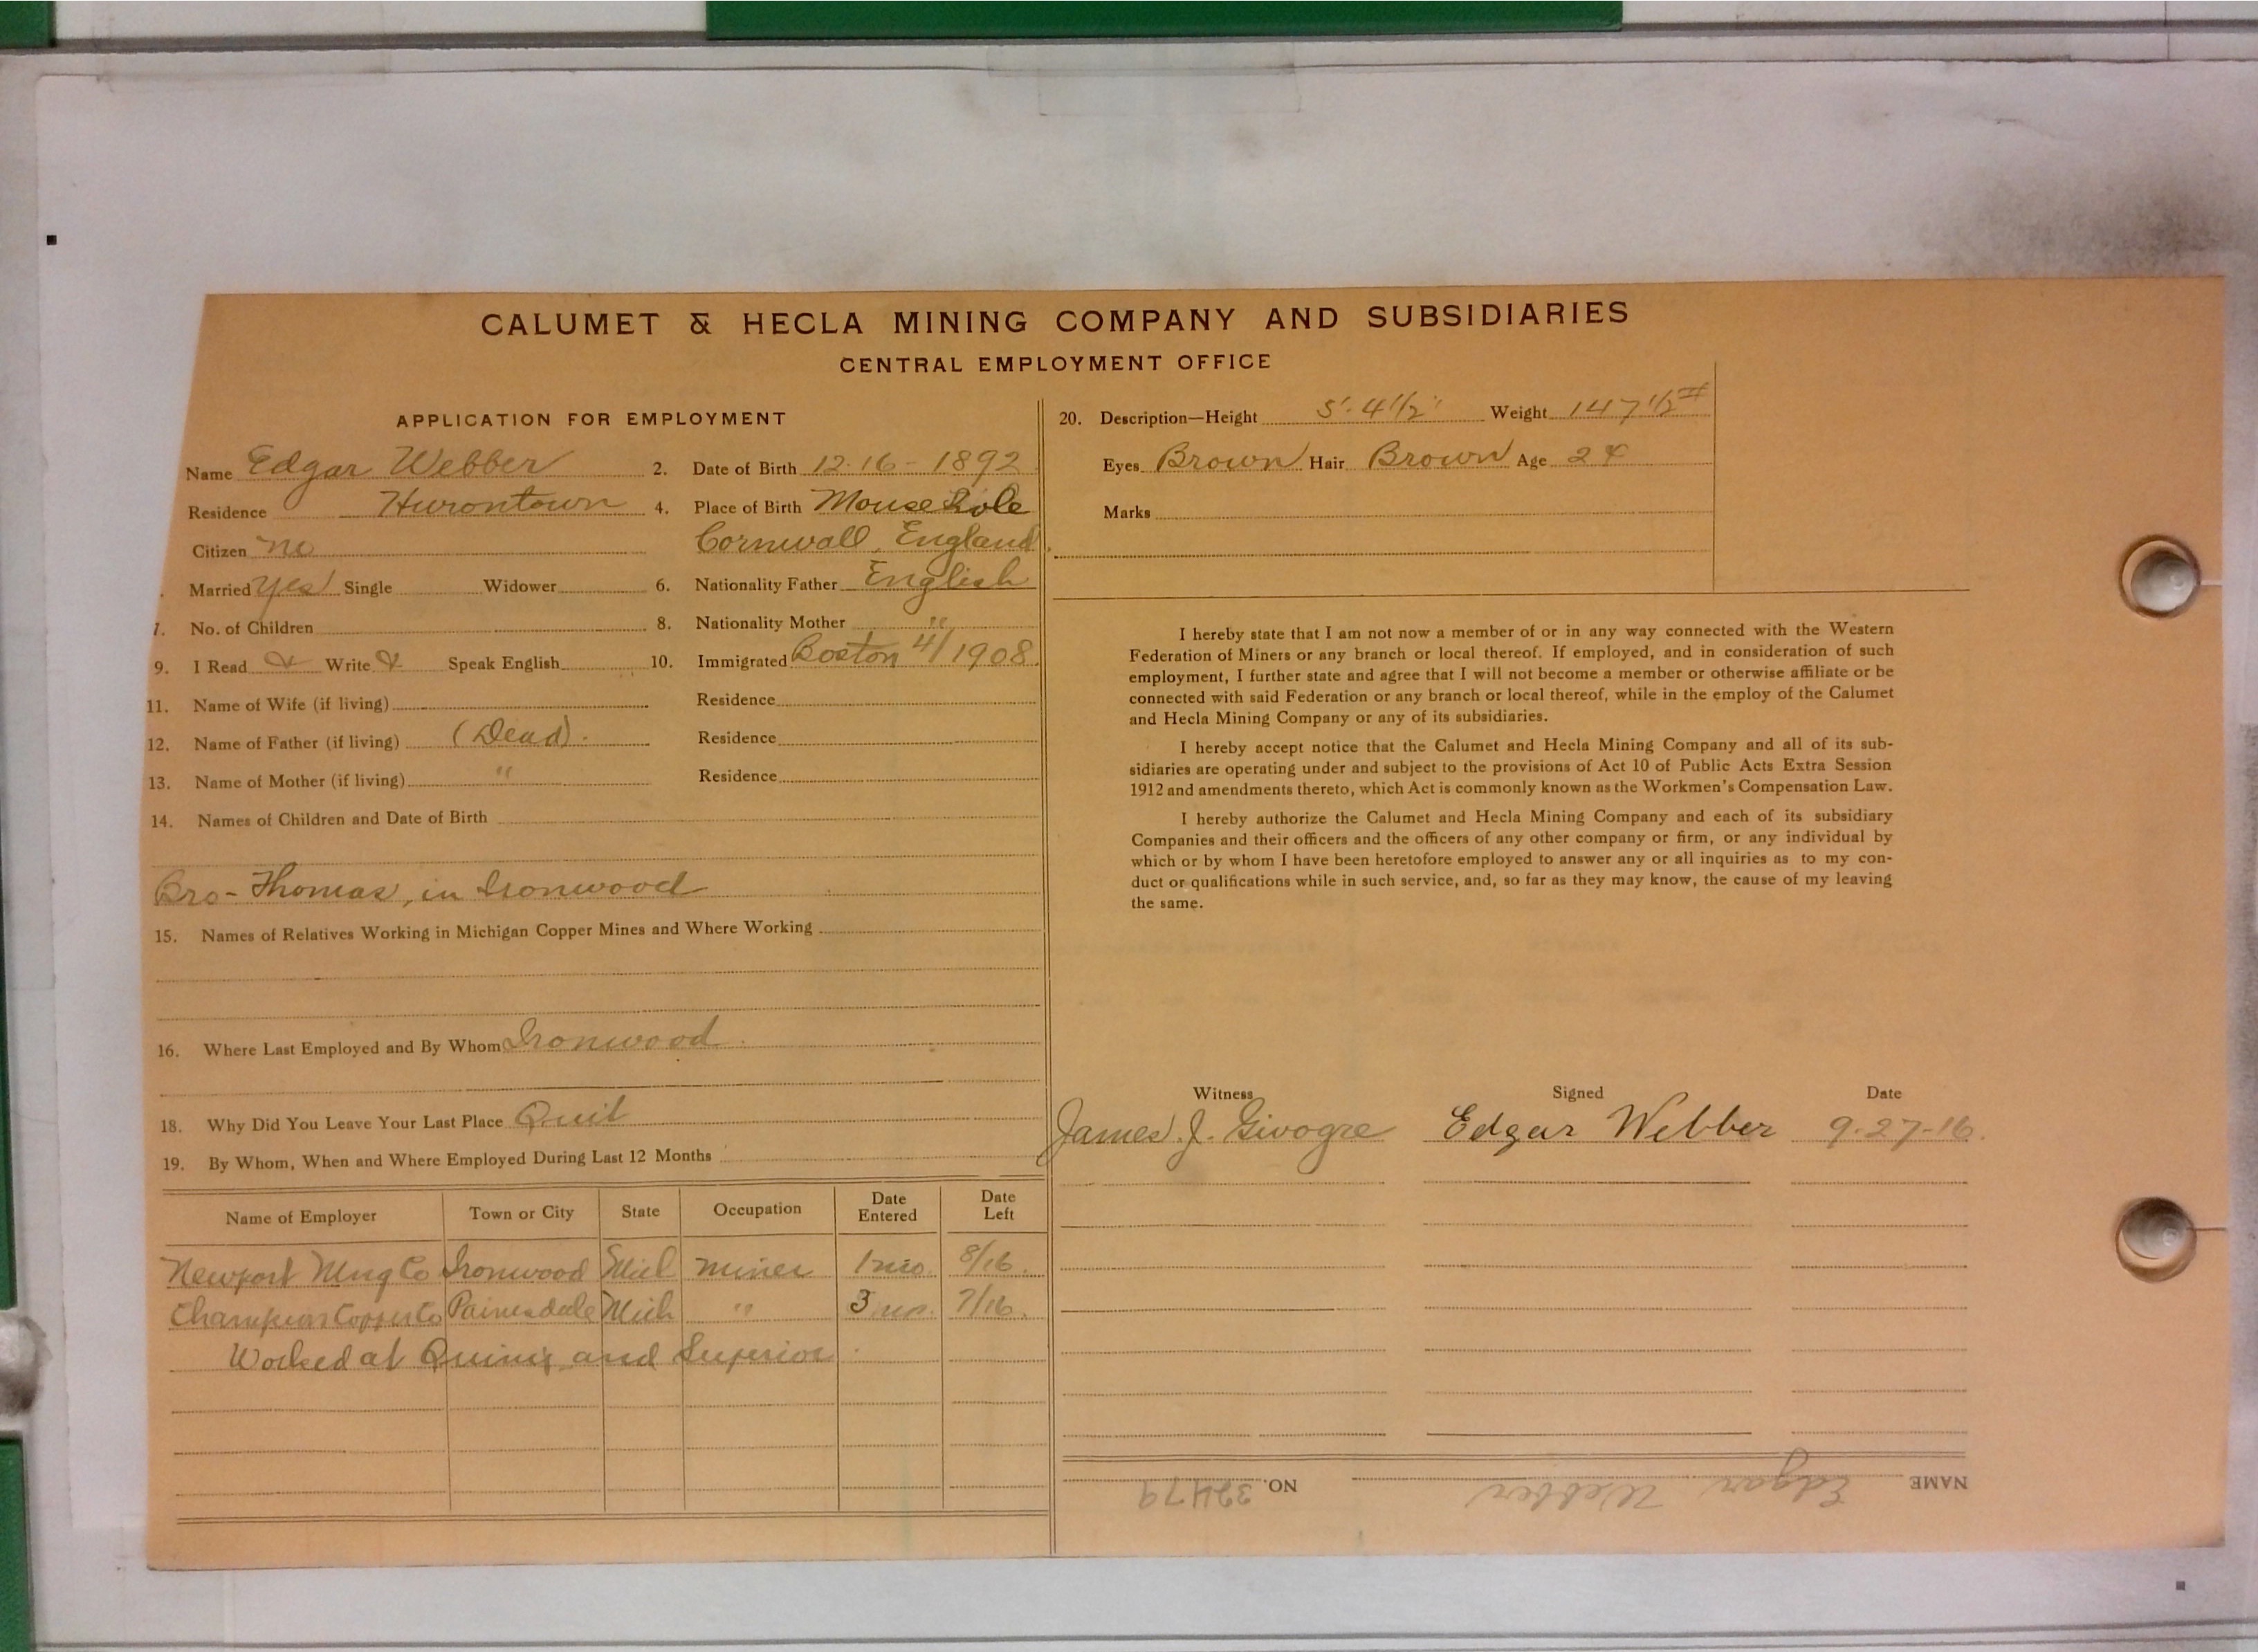 CALUMET & HECLA MINING COMPANY AND SUBSIDIARIES
CENTRAL EMPLOYMENT OFFICE
APPLICATION FOR EMPLOYMENT
Name Edgar Webber 2. Date of Birth 12-16-1892
Residence Hurontown 4. Place of Birth Mouse Hole
Citizen no Cornwall, England
Married yes Single Widower 6. Nationality Father English
7. No. of Children 8. Nationality Mother "
9. I Read & Write & Speak English 10. Immigrated Boston 4/1908.
11. Name of Wife (if living) Residence
12. Name of Father (if living) (Dead). Residence
13. Name of Mother (if living) " Residence
14. Names of Children and Date of Birth
Bro- Thomas, in Ironwood
15. Names of Relatives Working in Michigan Copper Mines and Where Working
16. Where Last Employed and By Whom Ironwood.
18. Why Did You Leave Your Last Place Quit
19. By Whom, When and Where Employed During Last 12 Months
Name of Employer Town or City State Occupation Date Entered Date Left
Newport Mng Co Ironwood Mich miner 1 mo. 8/16.
Champion Copper Co Painesdale Mich " 3 mo. 7/16.
Worked at Quincy and Superior.
20. Description—Height 5'-4 1/2" Weight 147 1/2 #
Eyes Brown Hair Brown Age 24
Marks
I hereby state that I am not now a member of or in any way connected with the Western
Federation of Miners or any branch or local thereof. If employed, and in consideration of such
employment, I further state and agree that I will not become a member or otherwise affiliate or be
connected with said Federation or any branch or local thereof, while in the employ of the Calumet
and Hecla Mining Company or any of its subsidiaries.
I hereby accept notice that the Calumet and Hecla Mining Company and all of its sub-
sidiaries are operating under and subject to the provisions of Act 10 of Public Acts Extra Session
1912 and amendments thereto, which Act is commonly known as the Workmen's Compensation Law.
I hereby authorize the Calumet and Hecla Mining Company and each of its subsidiary
Companies and their officers and the officers of any other company or firm, or any individual by
which or by whom I have been heretofore employed to answer any or all inquiries as to my con-
duct or qualifications while in such service, and, so far as they may know, the cause of my leaving
the same.
Witness Signed Date
James J. Edgar Webber 9-27-16.
NAME Edgar Webber NO. 32479